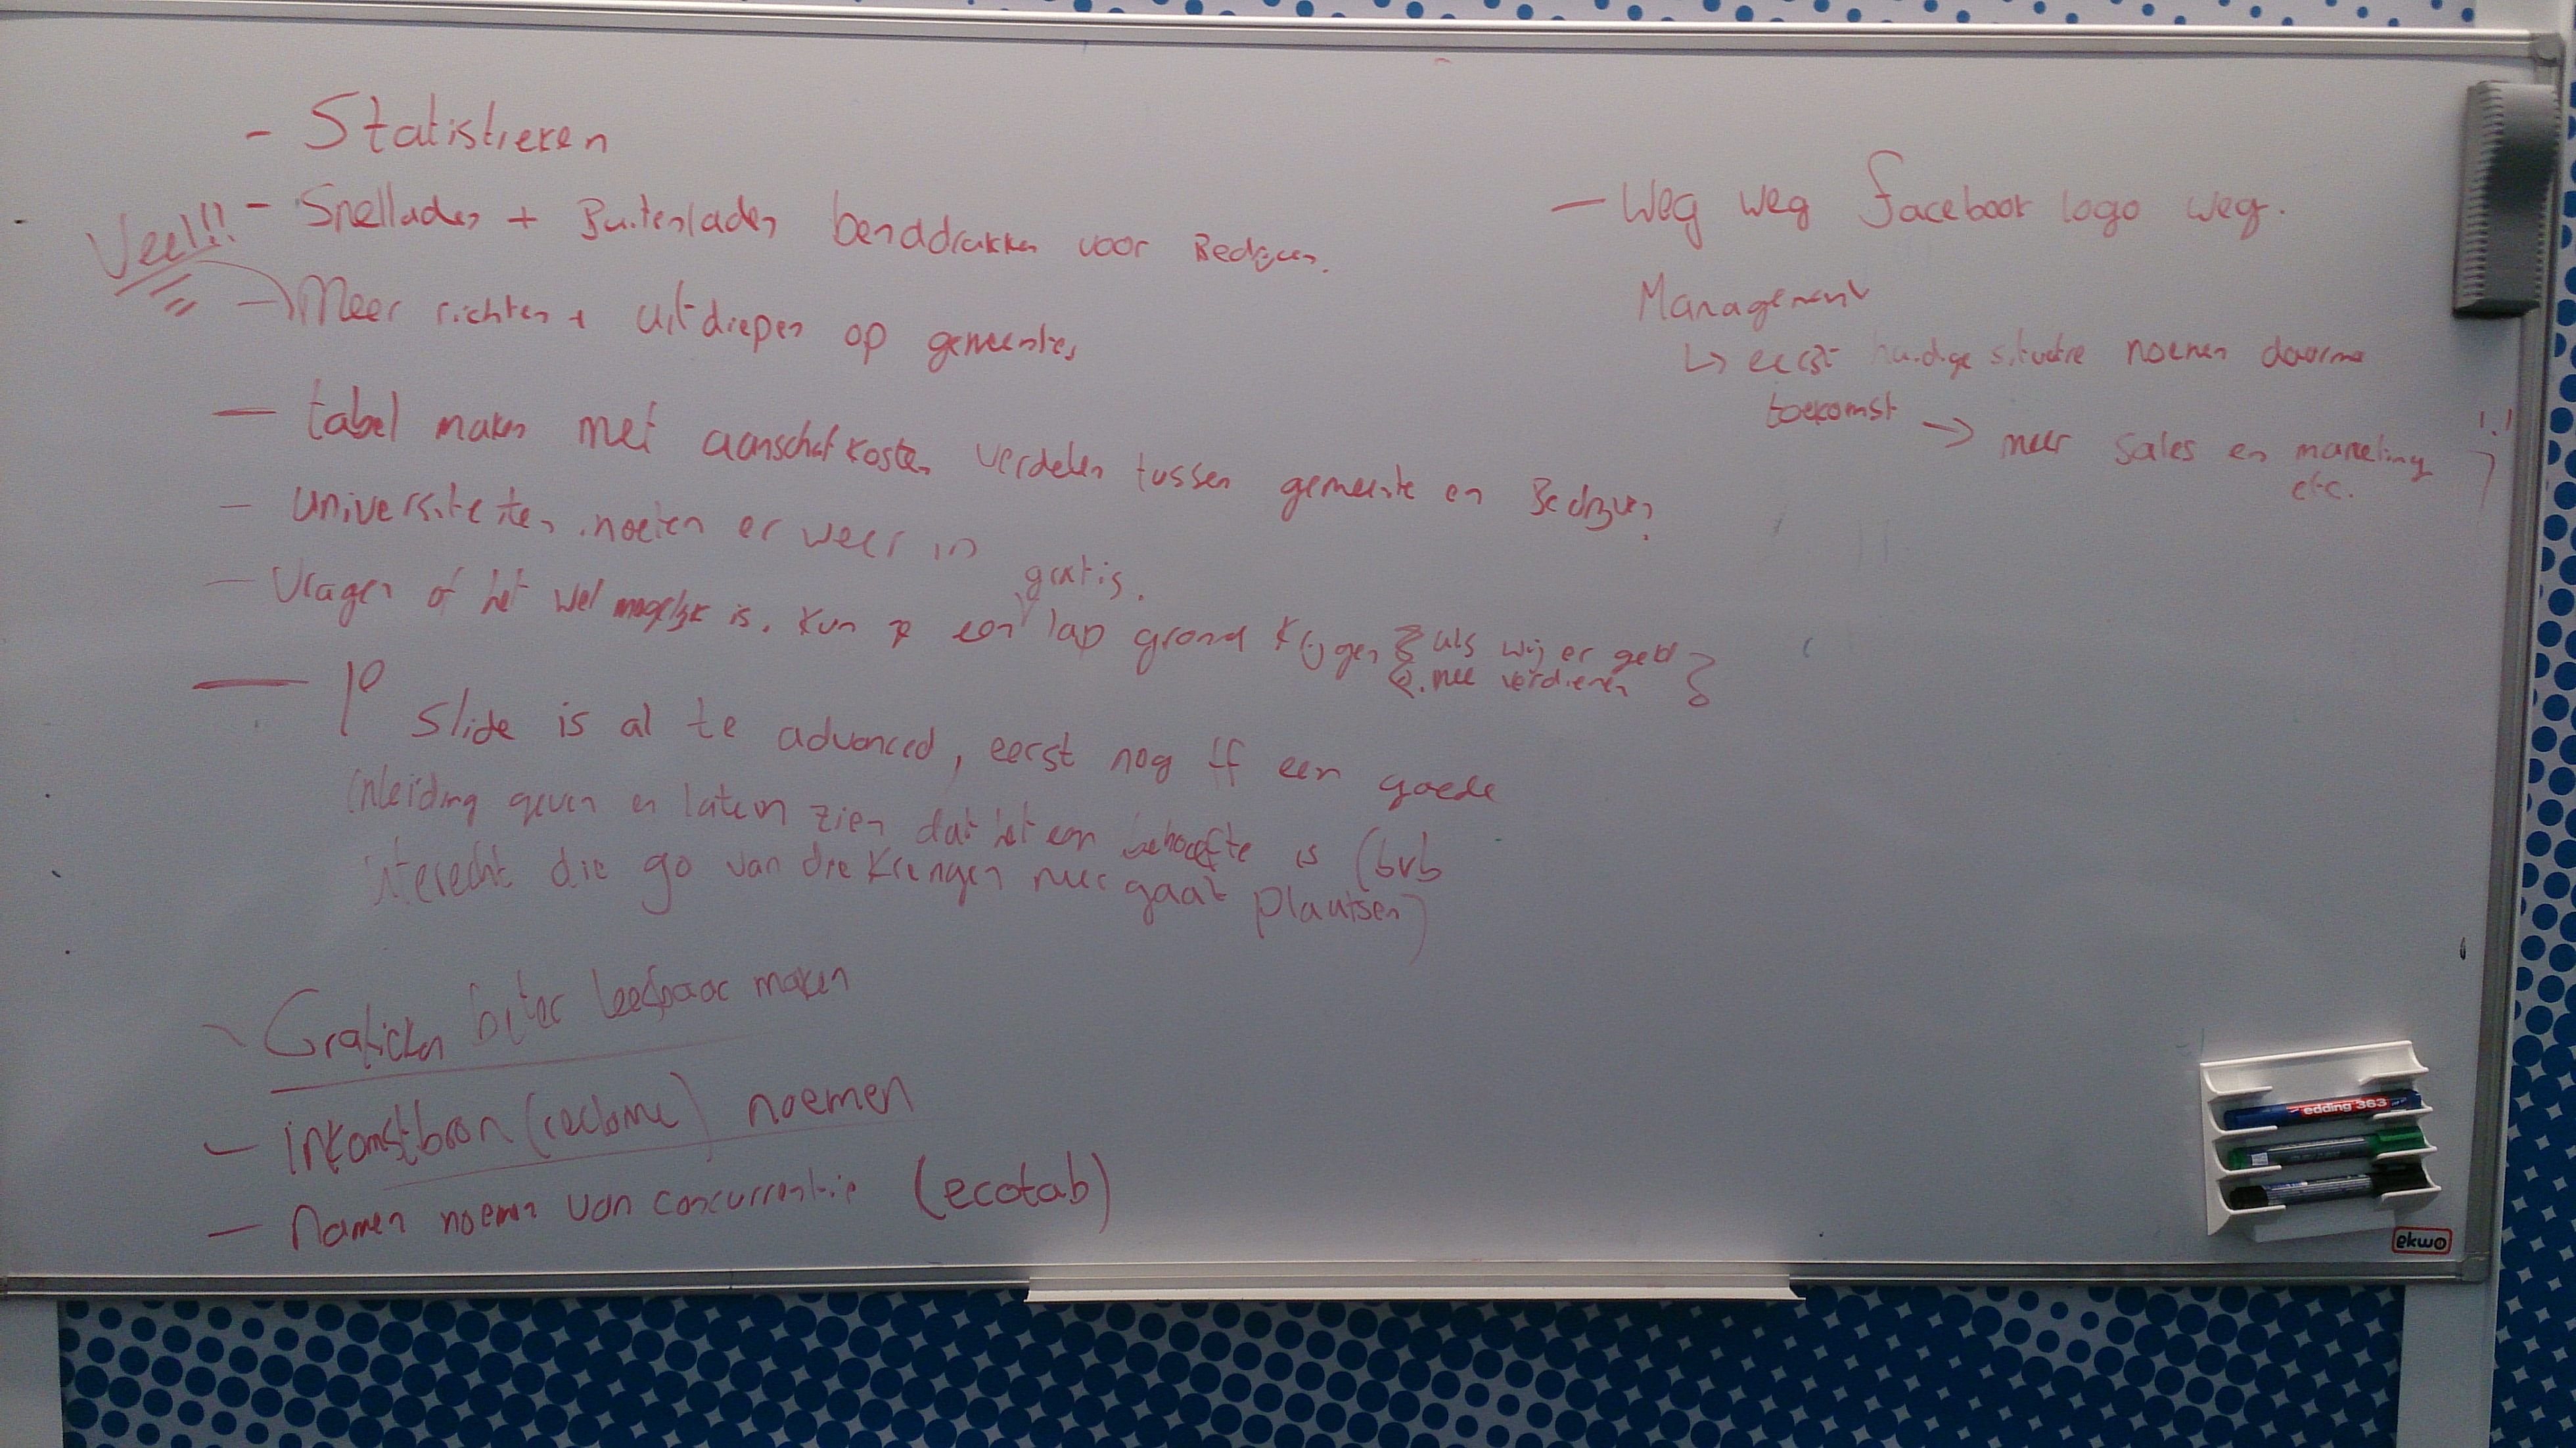 - Statistieken
- Snelladen + Buitenladen benaddrukken voor Bedrijven.
Veel!!!
Meer richten + uitdiepen op gemeentes
- tabel maken met aanschafkosten verdelen tussen gemeente en Bedrijven
- Universiteiten moeten er weer in
gratis.
- Vragen of het wel mogelijk is. Kun je een lap grond krijgen { als wij er geld
mee verdienen }
- 1e slide is al te advanced, eerst nog ff een goede
inleiding geven en laten zien dat het een behoefte is (bvb
utrecht die 90 van die krengen neer gaat plaatsen)
- Grafieken beter leesbaar maken
- inkomstbron (reclame) noemen
- Namen noemen van concurrentie (ecotab)
- Weg weg facebook logo weg.
Management
↳ eerst huidige situatie noemen daarna
toekomst → meer sales en marketing
etc.
edding 363
ekwo